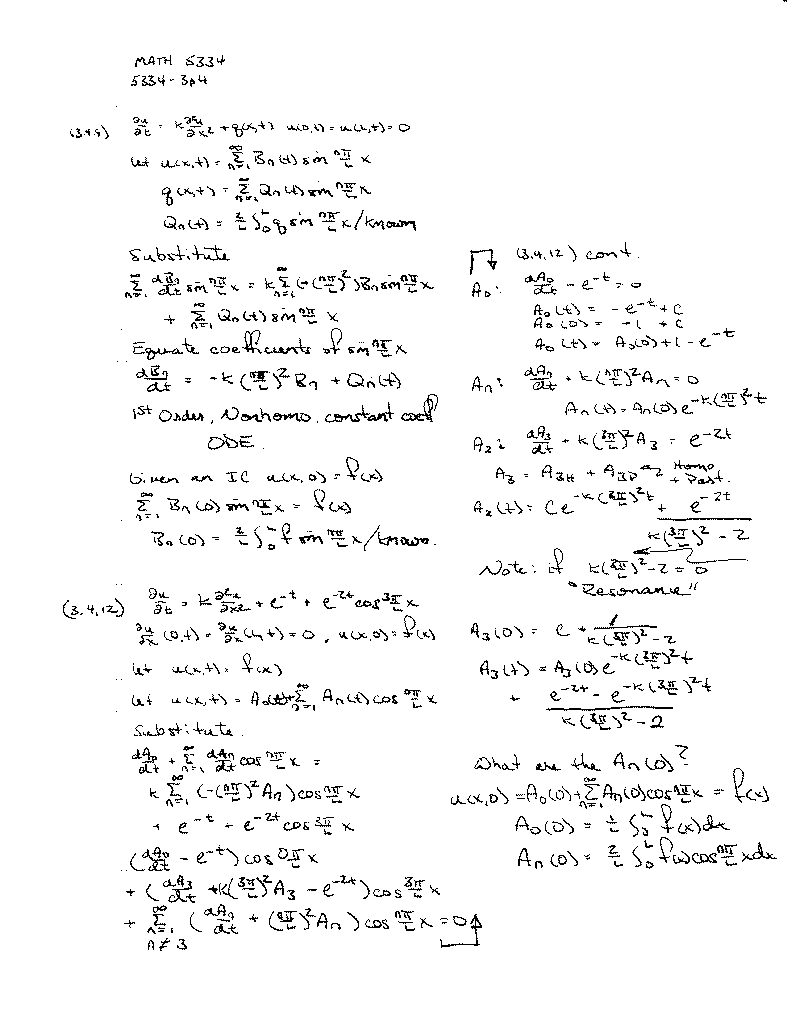 MATH 5334
5334-3p4
(3.4.9) ∂u/∂t = k ∂²u/∂x² + q(x,t) u(0,t) = u(L,t) = 0
let u(x,t) = Σ_{n=1}^∞ Bn(t) sin nπ/L x
q(x,t) = Σ_{n=1}^∞ Qn(t) sin nπ/L x
Qn(t) = 2/L ∫₀^L q sin nπ/L x / known
Substitute
Σ_{n=1}^∞ dBn/dt sin nπ/L x = k Σ_{n=1}^∞ (-(nπ/L)²) Bn sin nπ/L x
+ Σ_{n=1}^∞ Qn(t) sin nπ/L x
Equate coefficients of sin nπ/L x
dBn/dt = -k (nπ/L)² Bn + Qn(t)
1st Order, Nonhomo, constant coef
ODE.
Given an IC u(x,0) = f(x)
Σ_{n=1}^∞ Bn(0) sin nπ/L x = f(x)
Bn(0) = 2/L ∫₀^L f sin nπ/L x / known.
(3.4.12) ∂u/∂t = k ∂²u/∂x² + e^{-t} + e^{-2t} cos 3π/L x
∂u/∂x (0,t) = ∂u/∂x (L,t) = 0, u(x,0) = f(x)
let u(x,t) = f(x)
let u(x,t) = A₀(t) + Σ_{n=1}^∞ An(t) cos nπ/L x
Substitute.
dA₀/dt + Σ_{n=1}^∞ dAn/dt cos nπ/L x =
k Σ_{n=1}^∞ (-(nπ/L)² An) cos nπ/L x
+ e^{-t} + e^{-2t} cos 3π/L x
(dA₀/dt - e^{-t}) cos 0π/L x
+ (dA₃/dt + k(3π/L)² A₃ - e^{-2t}) cos 3π/L x
+ Σ_{n=1}^∞ (dAn/dt + (nπ/L)² An) cos nπ/L x = 0
n≠3
(3.4.12) cont.
A₀: dA₀/dt - e^{-t} = 0
A₀(t) = -e^{-t} + C
A₀(0) = -1 + C
A₀(t) = A₀(0) + 1 - e^{-t}
An: dAn/dt + k(nπ/L)² An = 0
An(t) = An(0) e^{-k(nπ/L)² t}
A₃: dA₃/dt + k(3π/L)² A₃ = e^{-2t}
A₃ = A₃H + A₃P Homo + Part.
A₃(t) = C e^{-k(3π/L)² t} + e^{-2t} / (k(3π/L)² - 2)
Note: if k(3π/L)² - 2 = 0
"Resonance"
A₃(0) = C + 1 / (k(3π/L)² - 2)
A₃(t) = A₃(0) e^{-k(3π/L)² t}
+ (e^{-2t} - e^{-k(3π/L)² t}) / (k(3π/L)² - 2)
What are the An(0)?
u(x,0) = A₀(0) + Σ_{n=1}^∞ An(0) cos nπ/L x = f(x)
A₀(0) = 1/L ∫₀^L f(x) dx
An(0) = 2/L ∫₀^L f(x) cos nπ/L x dx